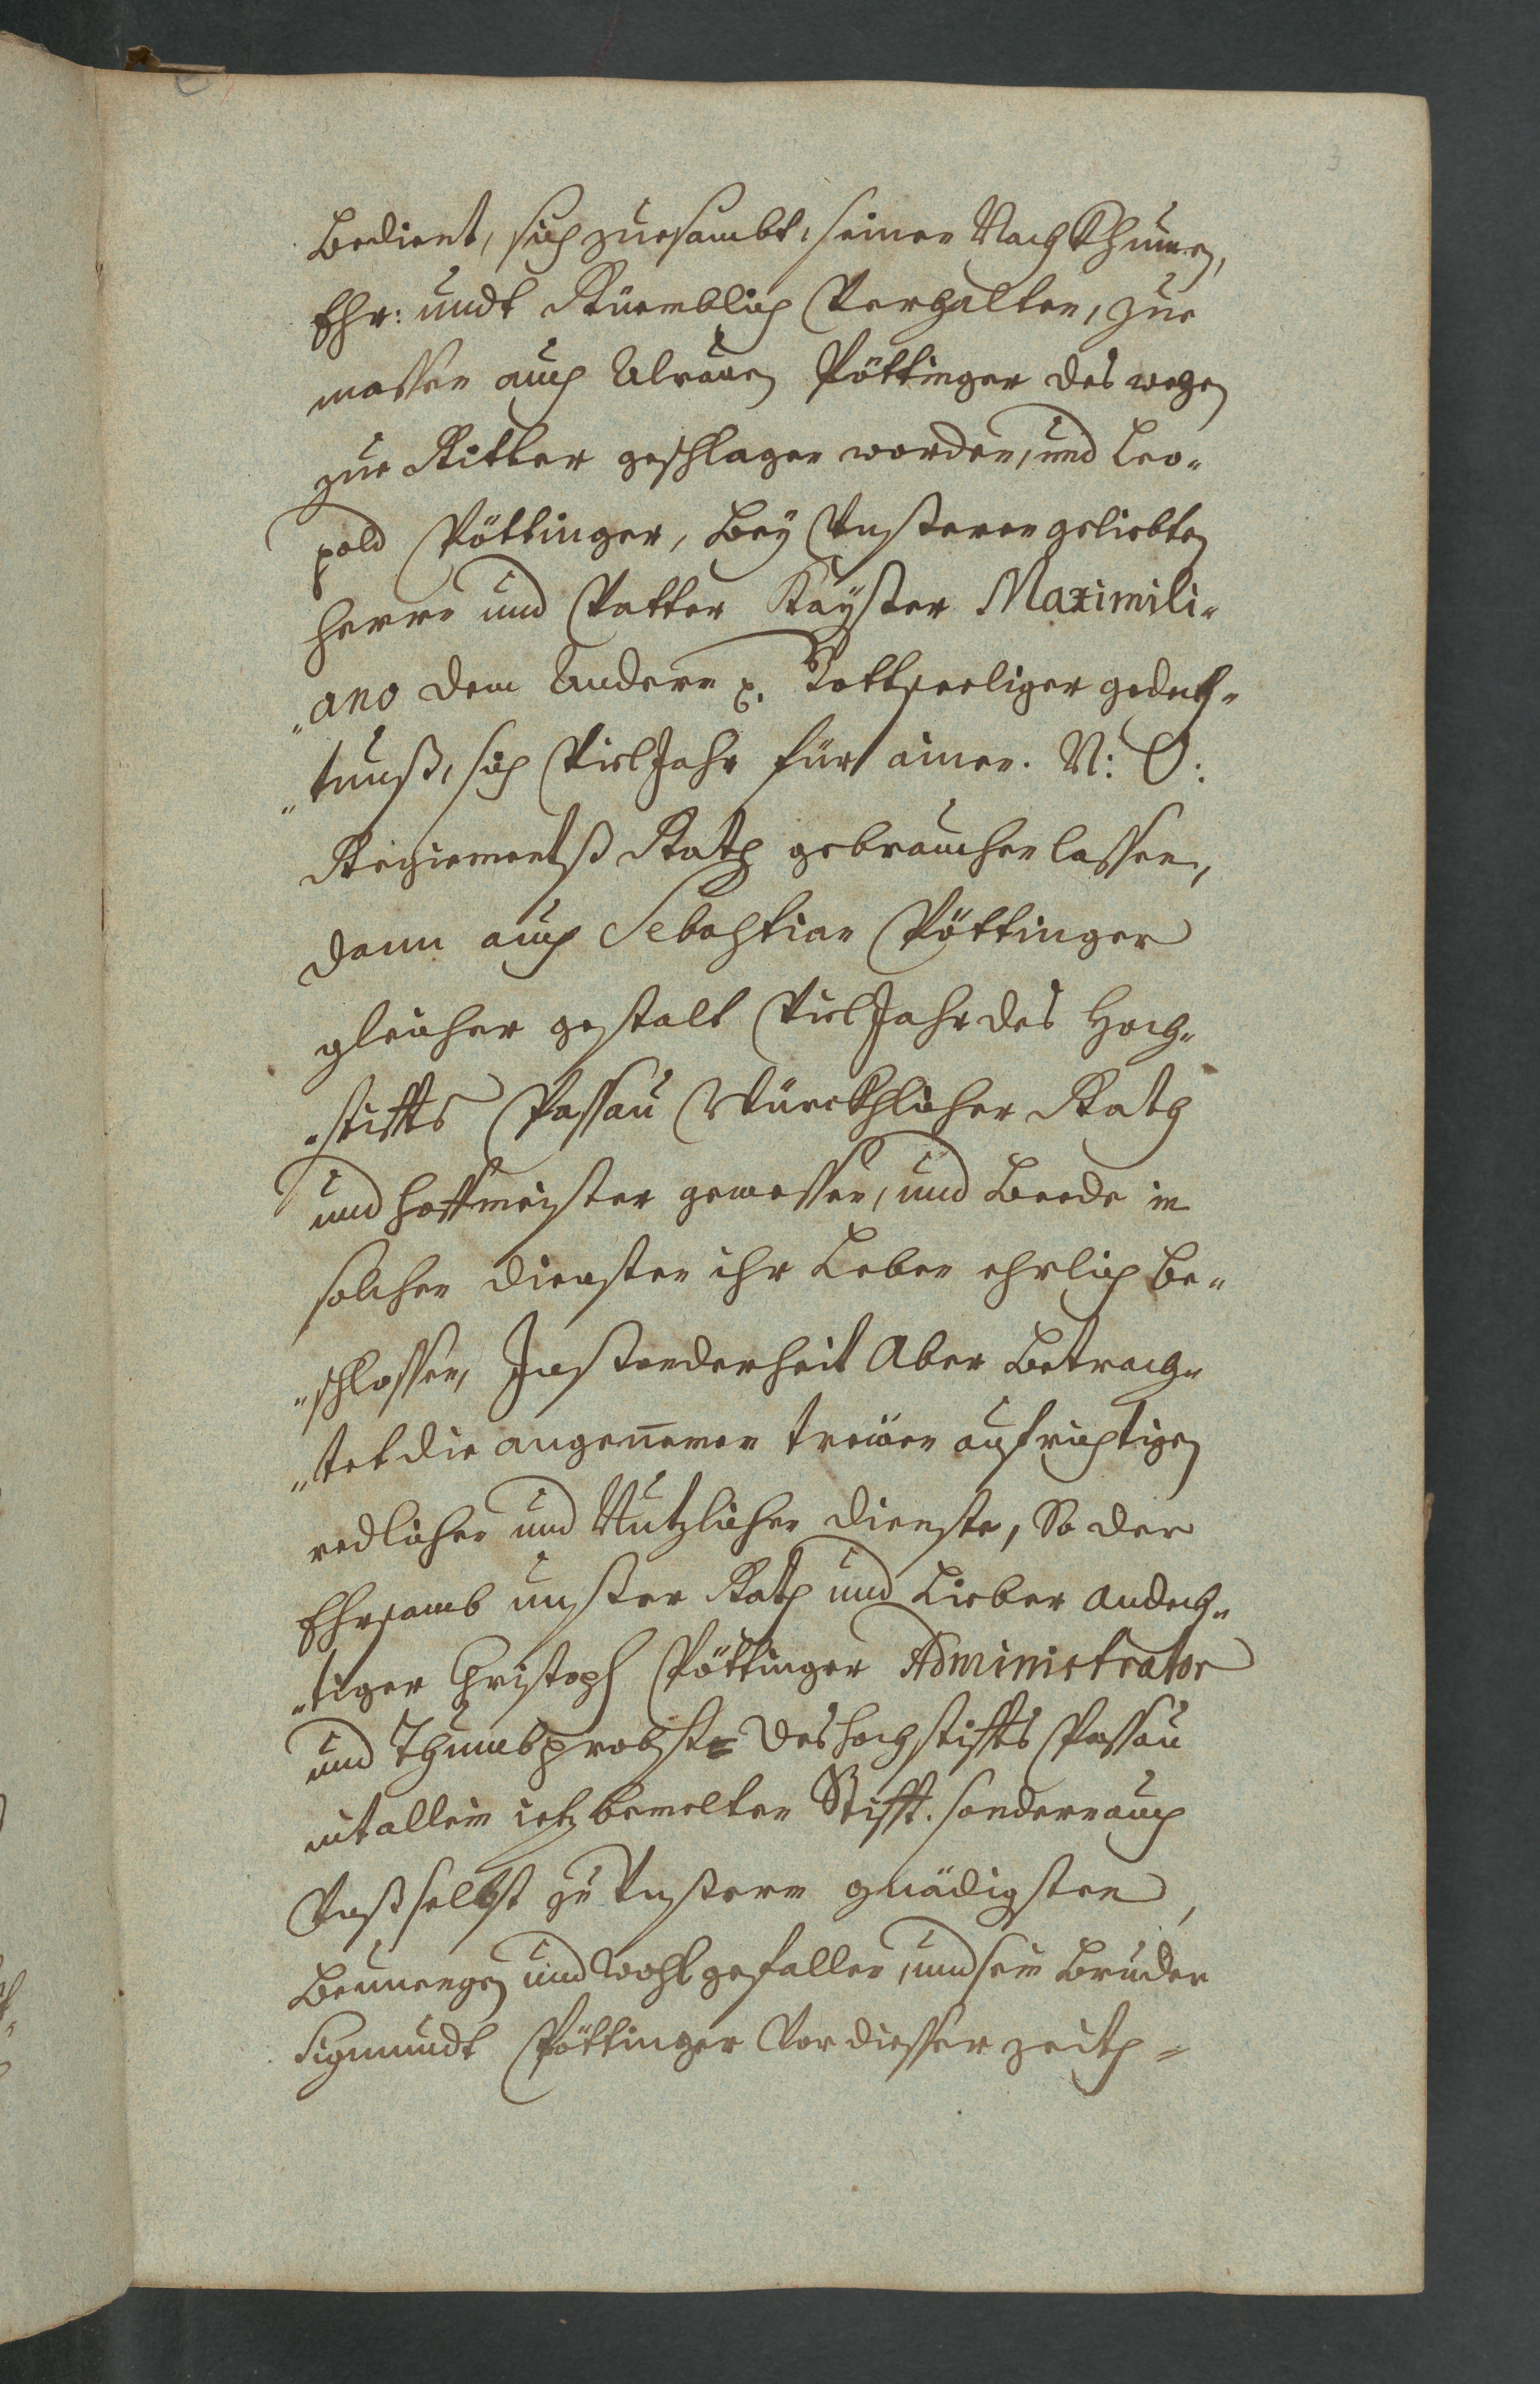 3
Bedient, sich zuesambt, seinen Nachkhumen,
Ehr: undt Rüemblich Verhalten, zue
massen auch Pöttinger des wegen
zue Ritter geschlagen worden, und Leo-
pold Pöttinger, Bey Vnsteren geliebten
Herrn und Vatter Kayster Maximili-
"ano dem Andern x. Gottseeliger gedech-
"tnuß, sich Viel Jahr für ainen. N: Ö:
Regimentß Rath gebrauchen lassen,
dann auch Sebastian Pöttinger
gleicher gestalt Viel Jahr des Hoch-
-stiffts Passau Würckhlicher Rath
und Hoffmeister gewessen, und Beede in
solchen diensten ihr Leben ehrlich be-
"schlossen, Insonderheit Aber Betrach-
"tet die angenemen treüen aufrichtigen
redlichen und Nutzlichen dienste, So der
Ehrsamb unster Rath und Lieber andech-
"tiger Christoph Pöttinger Administrator
und Thumbprobst des Hochstiffts Passau
nit allein ietz bemelten Stifft. sondern auch
Vnß selbst zu Vnstern gnädigsten,
Benuengen und Wohlgefallen, und sein Bruder
Sigmundt Pöttinger Vor diesser zeith -